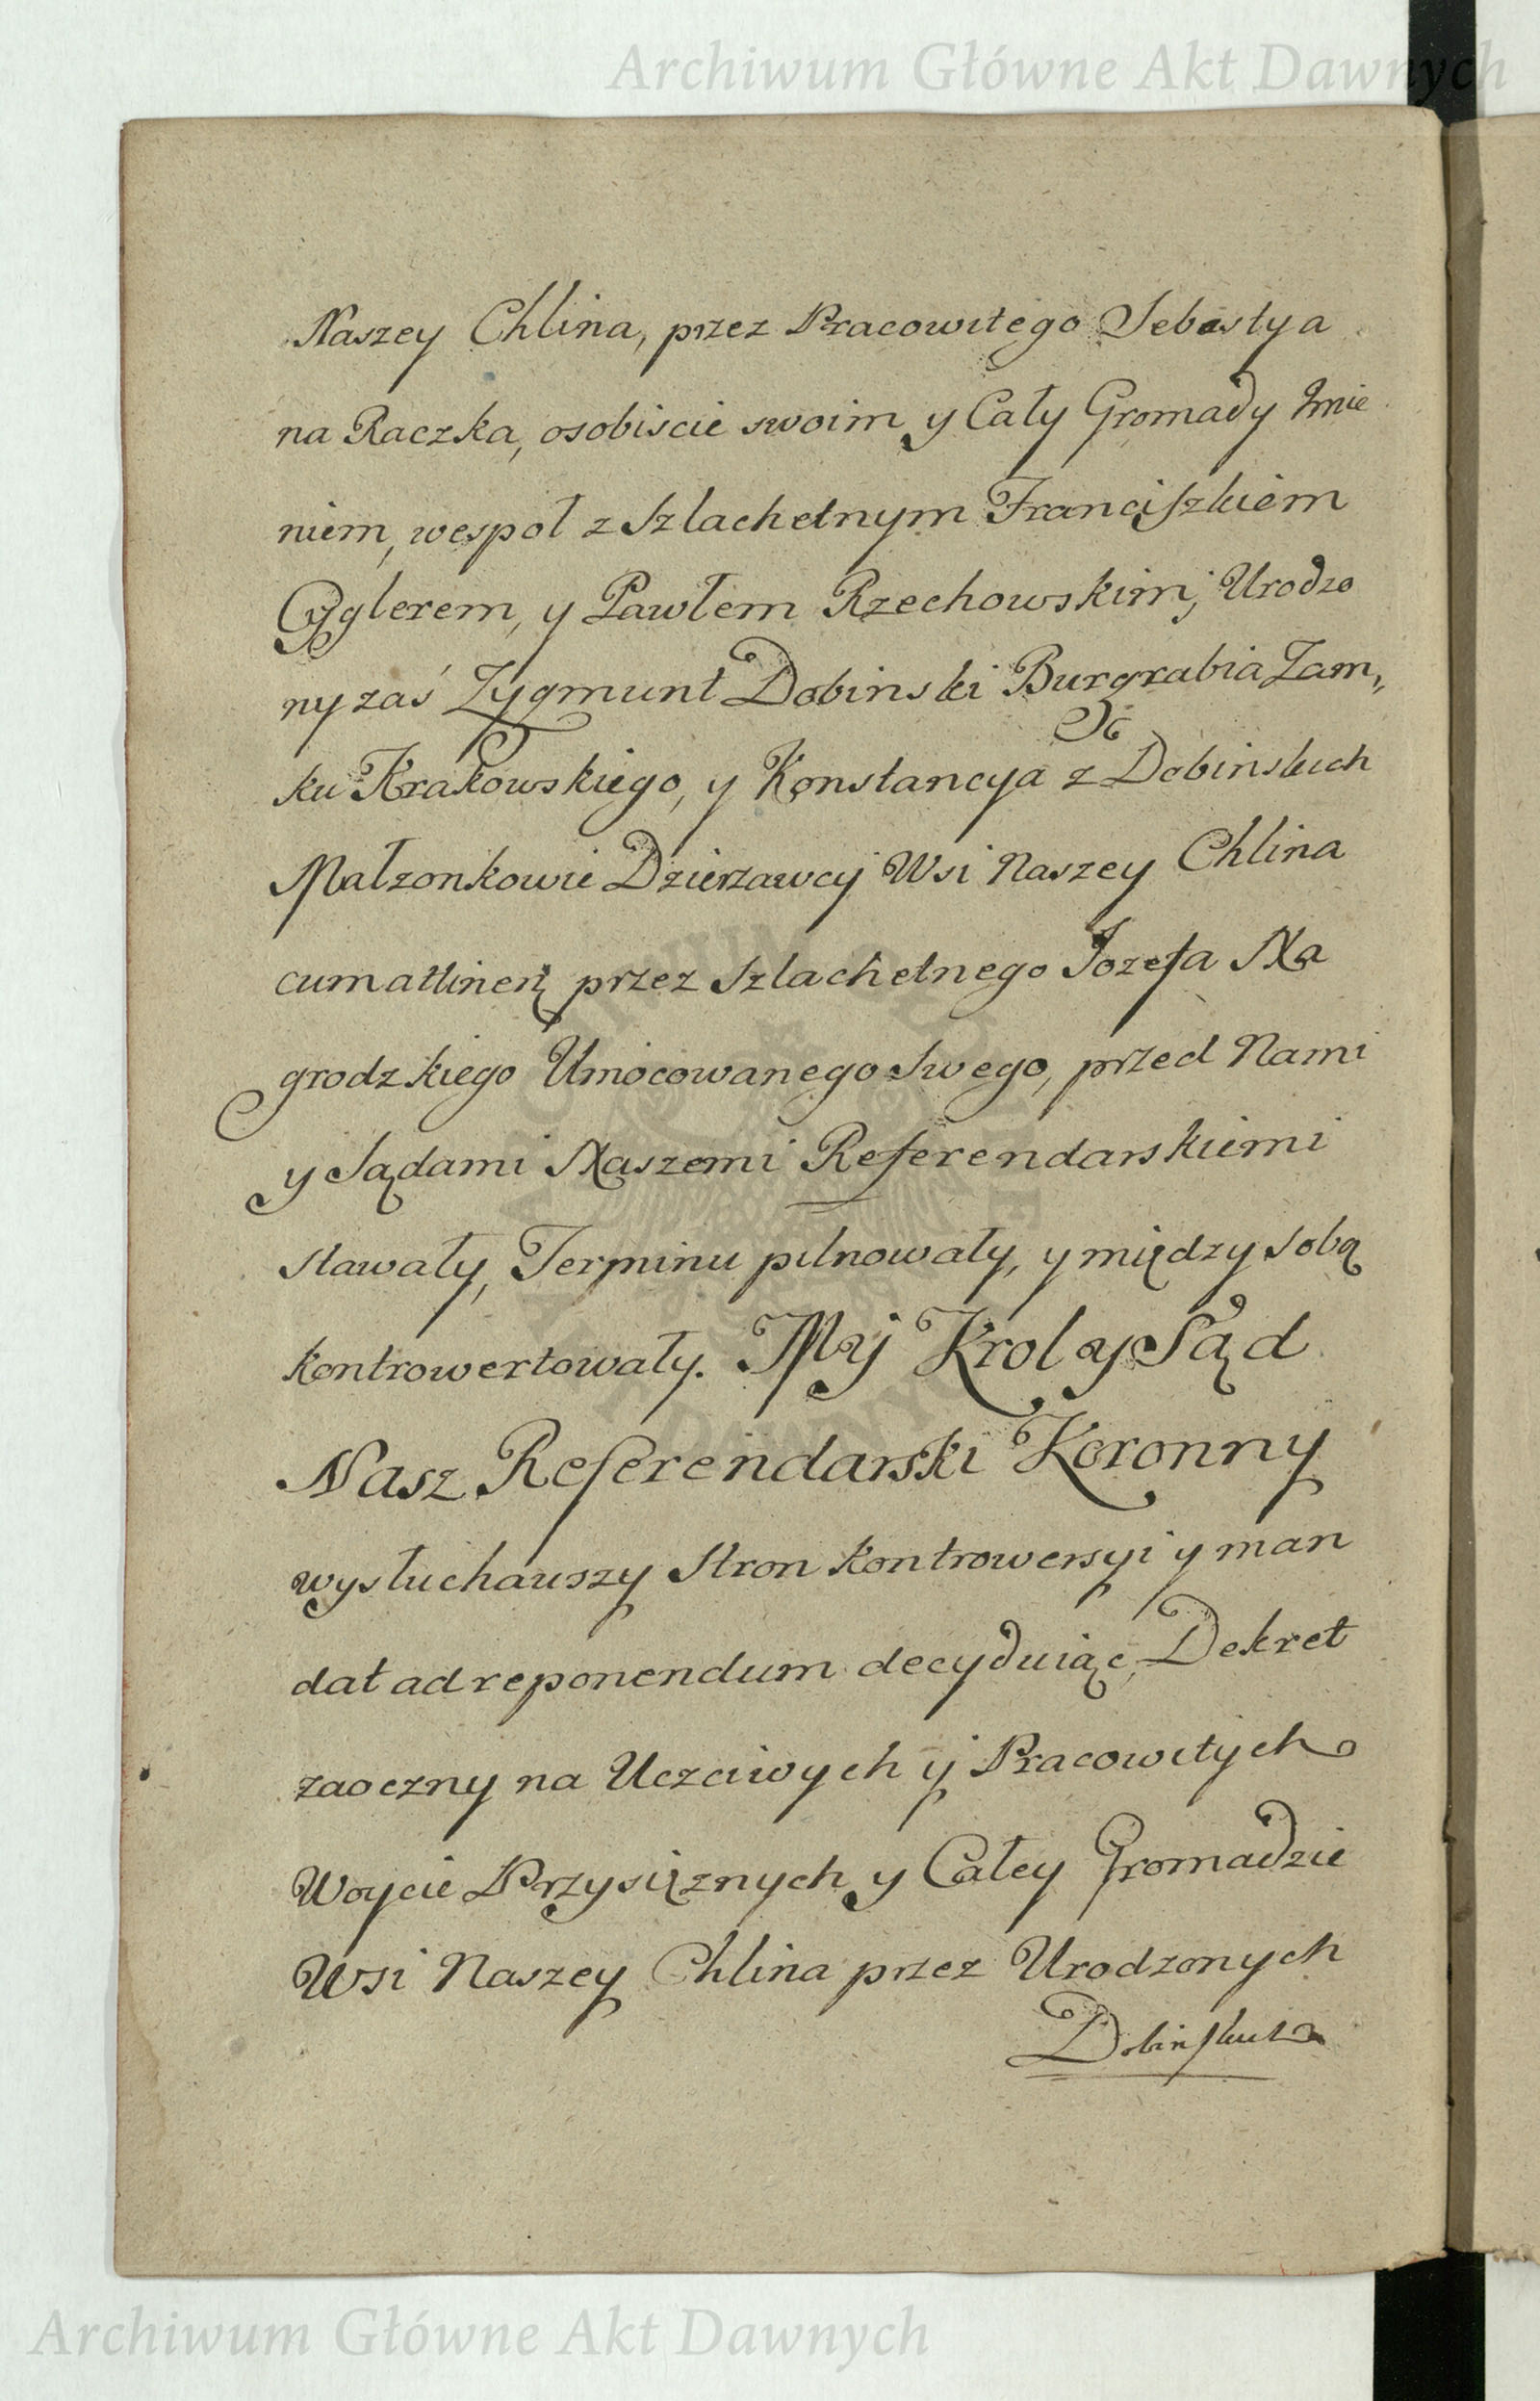 Archiwum Główne Akt Dawnych
Naszey Chlina, przez Pracowitego Sebastya
na Raczka, osobiscie swoim y Cały Gromady Imie
niem, wespoł z Szlachetnym Franciszkiem
Cyglerem, y Pawłem Rzechowskim; Urodzo
ny zaś Zygmunt Dobinski Burgrabia Zam,,
ku Krakowskiego, y Konstancya z Dobinskich
Małzonkowie Dzierzawcy Wsi Naszey Chlina
cum attinen: przez Szlachetnego Jozefa Na
grodzkiego Umocowanego Swego, przed Nami
y Sądami Naszemi Referendarskiemi
stawały, Terminu pilnowały, y między sobą
kontrowertowały. My Krol y Sąd
Nasz Referendarski Koronny
wysłuchawszy Stron kontrowersyi y man
dat ad reponendum decyduiąc, Dekret
zaoczny na Uczciwych y Pracowitych
Woycie Przysięznych y Całey Gromadzie
Wsi Naszey Chlina przez Urodzonych
Dobinskich
Archiwum Główne Akt Dawnych